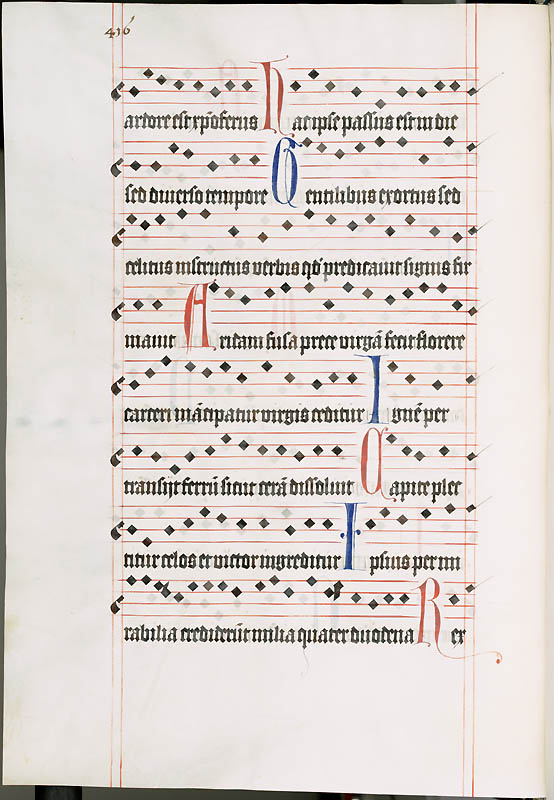 416
ardore est xpo fretus Hac ipse passus est in die
sed diverso tempore Gentilibus exortus sed
celitus instructus verbis qđ predicavit signis fir
mavit Aridam fusa prece virgā fecit florere
carceri mācipatur virgis ceditur Ignē per
transijt ferrū sicut cerā dissolvit Capite plec
titur celos et victor ingreditur Ipsius per mi
rabilia crediderūt milia quater duodena Rex